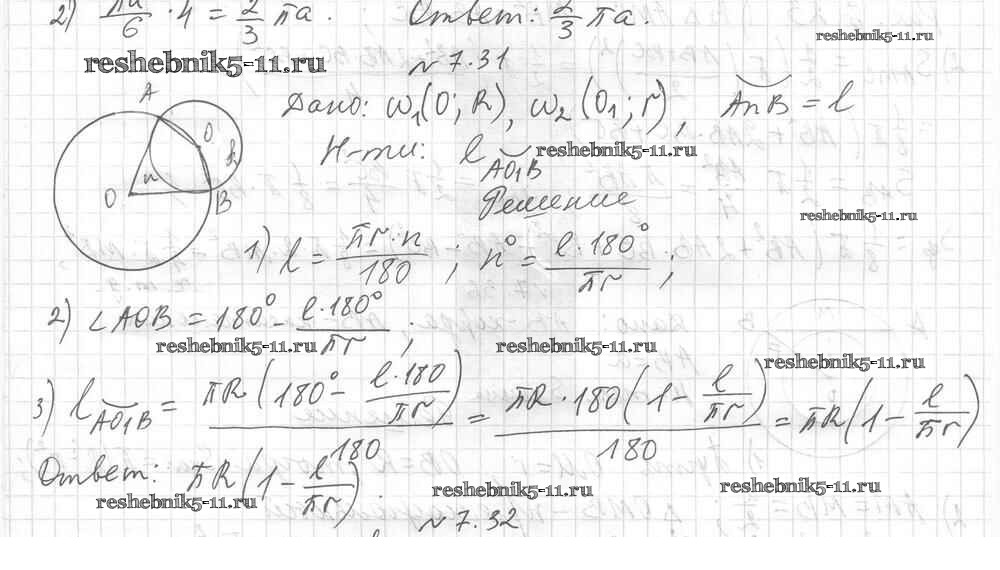 2) πa/6 · 4 = 2/3 πa. Ответ: 2/3 πa.
reshebnik5-11.ru
reshebnik5-11.ru
№ 7.31
Дано: ω₁(O; R), ω₂(O₁; r), AnB = l
A
O
O
B
n
Н-ти: l AO₁B
reshebnik5-11.ru
Решение
reshebnik5-11.ru
1) l = πr·n/180 ; n° = l·180°/πr ;
2) ∠AOB = 180° - l·180°/πr ;
reshebnik5-11.ru
reshebnik5-11.ru
reshebnik5-11.ru
3) l AO₁B = πR(180° - l·180/πr)/180 = πR·180(1 - l/πr)/180 = πR(1 - l/πr)
Ответ: πR(1 - l/πr).
reshebnik5-11.ru
reshebnik5-11.ru
reshebnik5-11.ru
№ 7.32